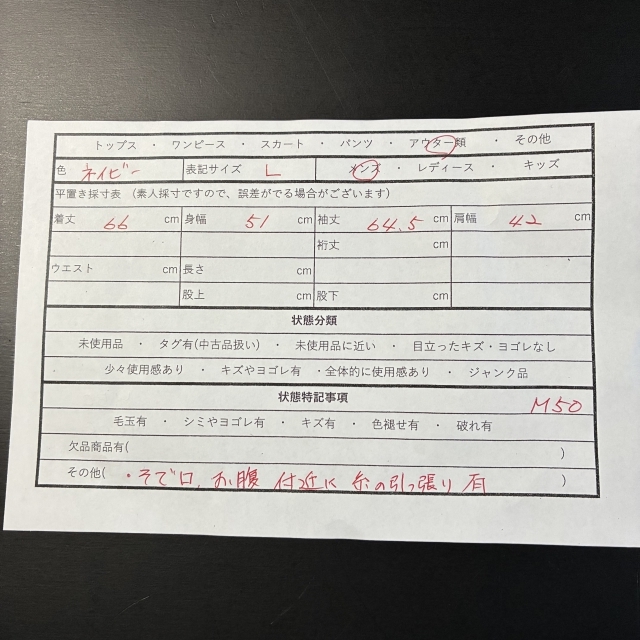 トップス ・ ワンピース ・ スカート ・ パンツ ・ アウター類 ・ その他
色 ネイビー 表記サイズ L メンズ ・ レディース ・ キッズ
平置き採寸表 (素人採寸ですので、誤差がでる場合がございます)
着丈 66 cm 身幅 51 cm 袖丈 64.5 cm 肩幅 42 cm
裄丈 cm
ウエスト cm 長さ cm
股上 cm 股下 cm
状態分類
未使用品 ・ タグ有(中古品扱い) ・ 未使用品に近い ・ 目立ったキズ・ヨゴレなし
少々使用感あり ・ キズやヨゴレ有 ・全体的に使用感あり ・ ジャンク品
状態特記事項
M50
毛玉有 ・ シミやヨゴレ有 ・ キズ有 ・ 色褪せ有 ・ 破れ有
欠品商品有( )
その他( ・そで口、お腹 付近に 糸の引っ張り 有 )